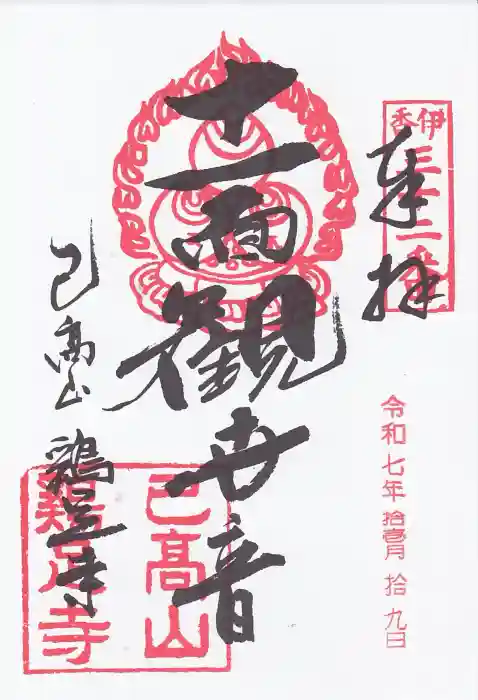 伊香
三十二番
奉拝
令和七年 拾壱月 拾九日
十一面觀世音
己高山 鶏足寺
己髙山
鷄足寺